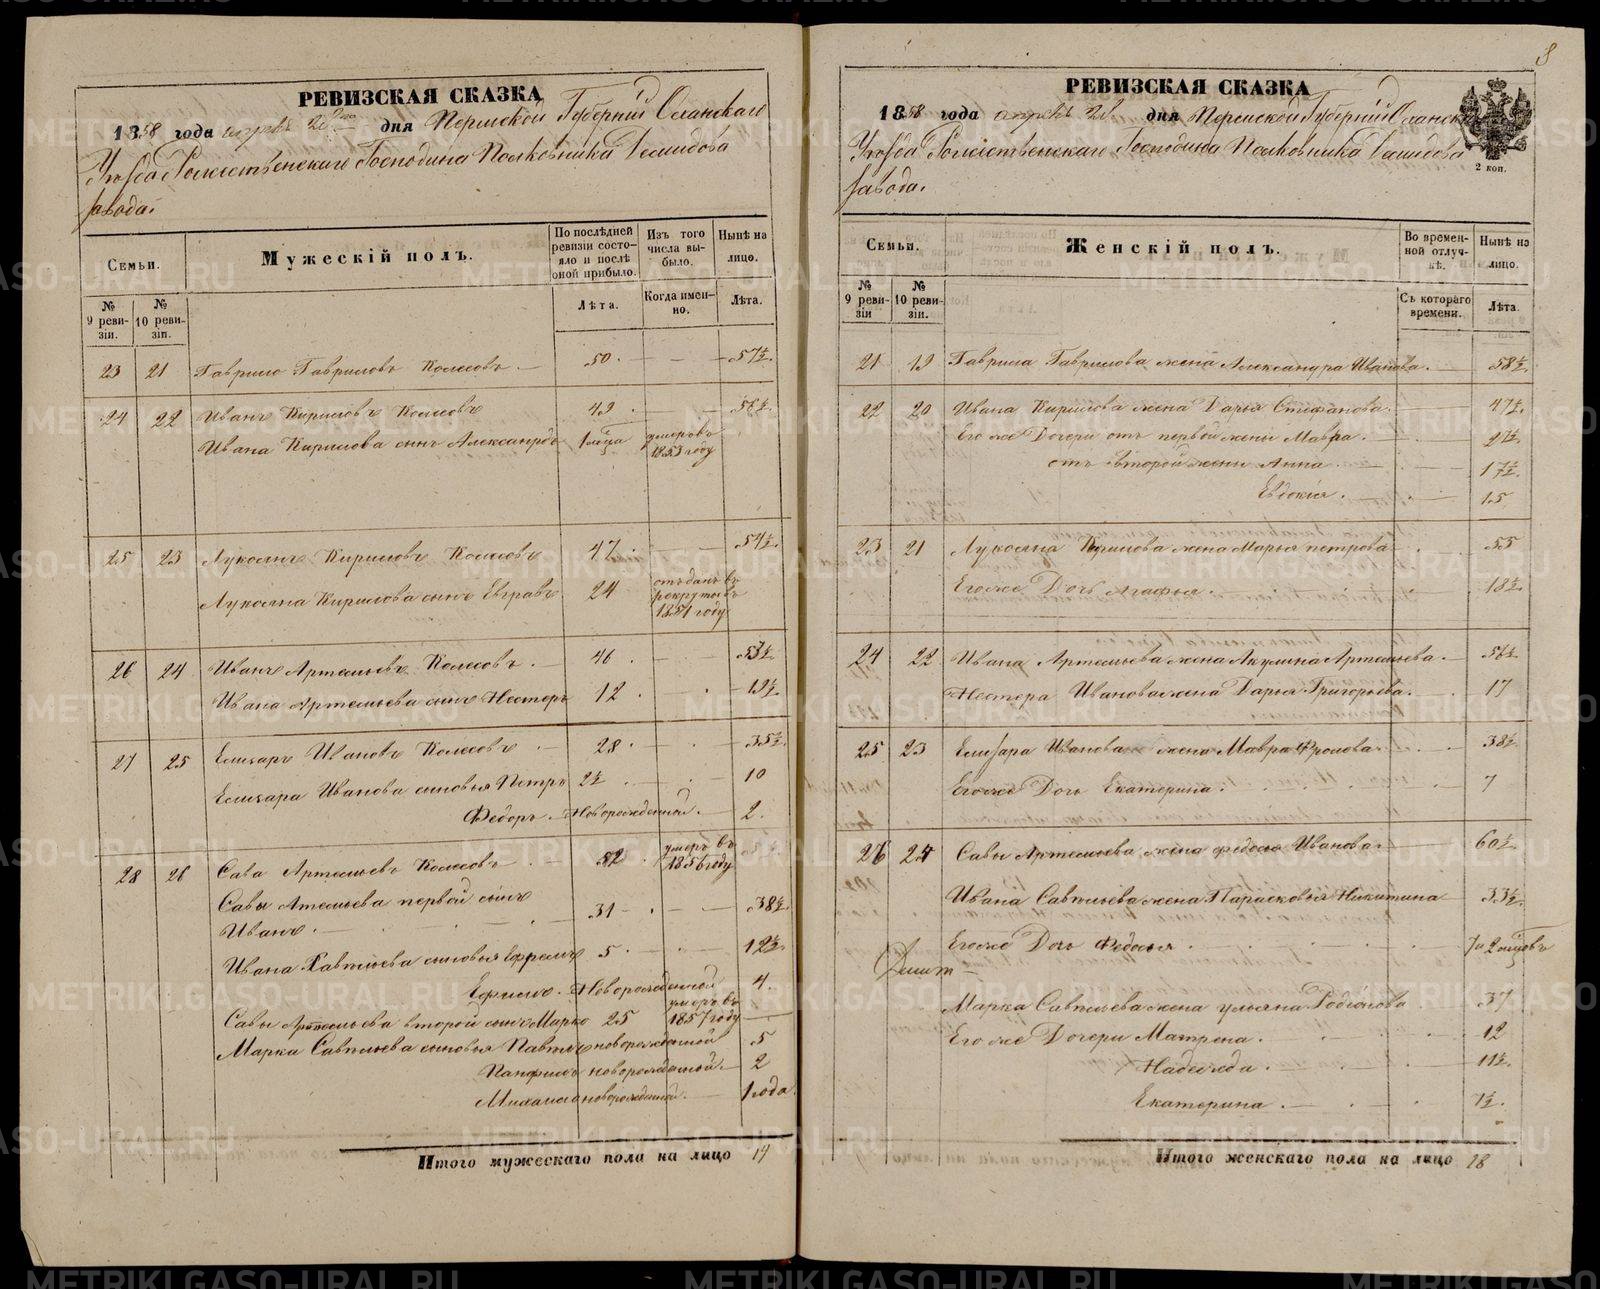 8
РЕВИЗСКАЯ СКАЗКА
1858 года апреля дня Пермской Губернiи Оханскаго
Уѣзда Рождественскаго Господина Полковника Демидова
завода.
Семьи. Мужескiй полъ. По послѣдней ревизiи состояло и послѣ оной прибыло. Изъ того числа выбыло. Нынѣ на лицо.
№ 9 ревизiи. № 10 ревизiи. Лѣта. Когда именно. Лѣта.
23 21 Гаврило Гавриловъ Колесовъ 50 57½
24 22 Иванъ Кириловъ Колесовъ 49 56½
Ивана Кирилова сынъ Александръ умеръ въ 1853 году
25 23 Лукоянъ Кириловъ Колесовъ 47 54½
Лукояна Кирилова сынъ Евграфъ 24 отъданъ въ рекруты въ 1854 году
26 24 Иванъ Артемьевъ Колесовъ 46 53½
Ивана Артемьева сынъ Нестеръ 12 19½
27 25 Елизаръ Ивановъ Колесовъ 28 35½
Елизара Иванова сыновья Петръ 2½ 10
Федоръ Новорожденной 2
28 26 Сава Артемьевъ Колесовъ 52 умеръ въ 1856 году
Савы Атемьева первой сынъ
Иванъ 31 38½
Ивана Савтиева сыновья Ефремъ 5 12½
Ефимъ Новорожденной 4
Савы Артемьева второй сынъ Марко 25 умеръ въ 1857 году
Марка Савтиева сыновья новорожденной 5
Панфилъ новорожденной 2
Михаило новорожденной 1 года
Итого мужескаго пола на лицо 14
РЕВИЗСКАЯ СКАЗКА
1858 года апреля дня Пермской Губернiи
Уѣзда Рождественскаго Господина Полковника Демидова
завода.
2 коп.
Семьи. Женскiй полъ. Во временной отлучкѣ. Нынѣ на лицо.
№ 9 ревизiи № 10 ревизiи. Съ котораго времени. Лѣта.
21 19 Гаврила Гаврилова жена Александра Иванова 58½
22 20 Ивана Кирилова жена Дарья Стефанова 47½
Его же Дочери отъ первой жены Мавра 27½
отъ второй жены Анна 17½
Евдокiя 15
23 21 Лукояна Кирилова жена Марья петрова 55
Его же Дочь Агафья 18½
24 22 Ивана Артемьева жена Акулина Артемьева 56½
Нестера Иванова жена Дарья Григорьева 17
25 23 Елизара Иванова жена Мавра Фролова 38½
Его же Дочь Екатерина 7
26 24 Савы Артемьева жена федосья Иванова 60½
Ивана Савтиева жена Парасковья Никитина 33½
Его же Дочь Федосья
Марка Савтиева жена ульяна Родiонова 37
Его же Дочери Матрена 12
Надежда 11½
Екатерина
Итого женскаго пола на лицо 18